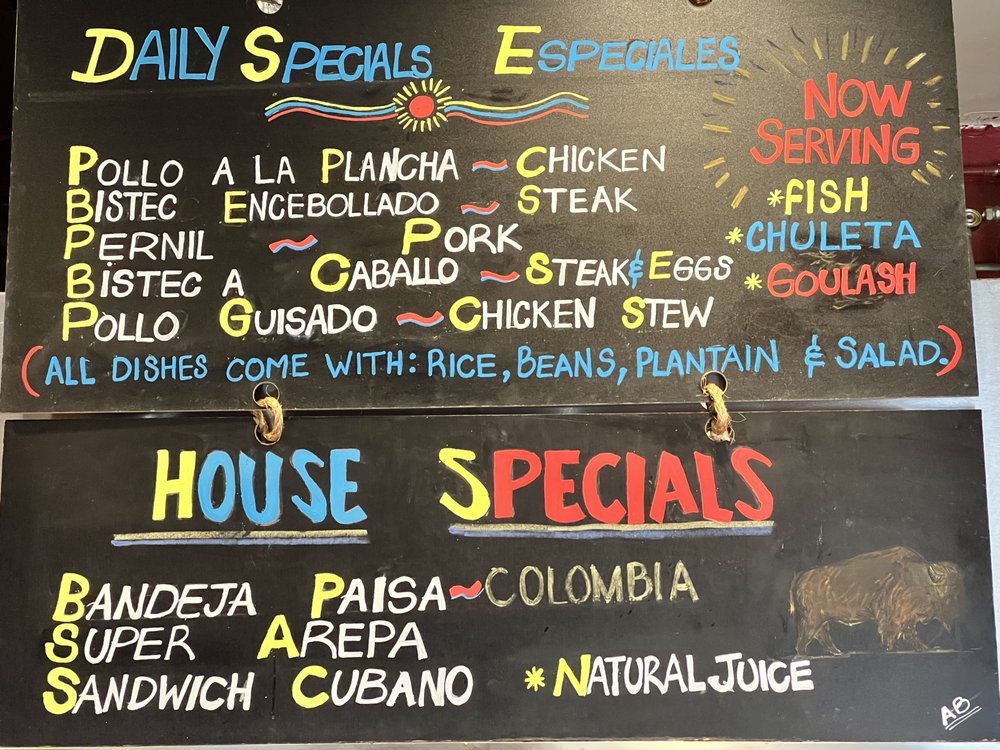 DAILY SPECIALS ESPECIALES
NOW
SERVING
*FISH
*CHULETA
*GOULASH
POLLO A LA PLANCHA ~ CHICKEN
BISTEC ENCEBOLLADO ~ STEAK
PERNIL ~ PORK
BISTEC A CABALLO ~ STEAK & EGGS
POLLO GUISADO ~ CHICKEN STEW
(ALL DISHES COME WITH: RICE, BEANS, PLANTAIN & SALAD.)
HOUSE SPECIALS
BANDEJA PAISA ~ COLOMBIA
SUPER AREPA
SANDWICH CUBANO *NATURAL JUICE
AB